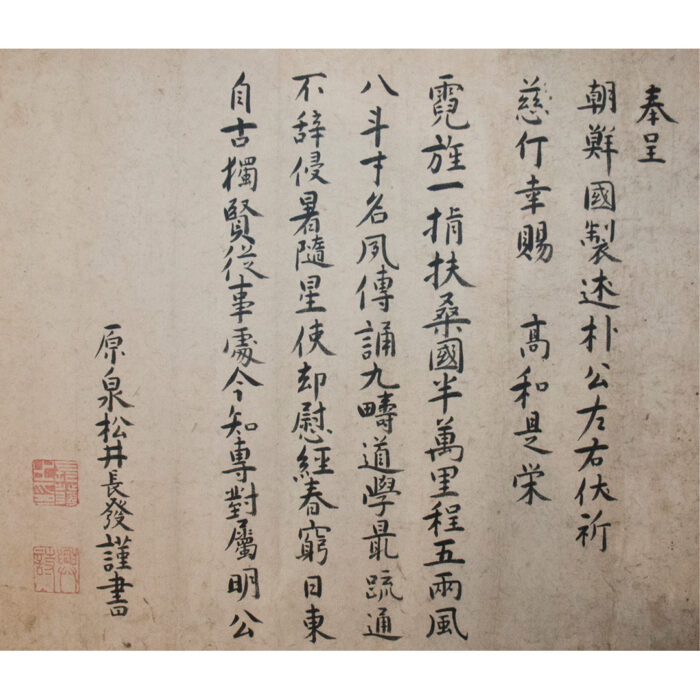 奉呈
朝鮮國製述朴公左右伏祈
慈行幸賜 高和是栄
霓旌一指扶桑國半萬里程五兩風
八斗才名夙傳誦九疇道學最疏通
不辞侵暑隨星使却慰經春窮日東
自古獨賢從事處今知專對屬明公
原泉松井長發謹書